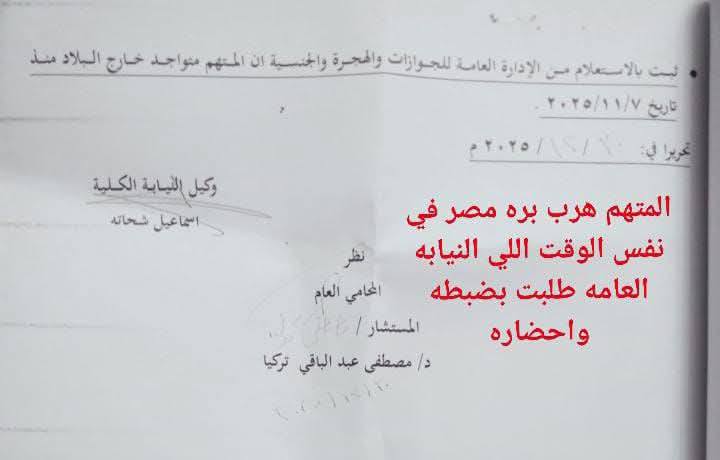 ثبت بالاستعلام من الإدارة العامة للجوازات والهجرة والجنسية ان المتهم متواجد خارج البلاد منذ
تاريخ ٢٠٢٥/١١/٧ .
تحريرا في: ٣٠ / ١٢ / ٢٠٢٥ م
وكيل النيابة الكلية
اسماعيل شحاته
المتهم هرب بره مصر في
نفس الوقت اللي النيابه
العامه طلبت بضبطه
واحضاره
نظر
المحامي العام
المستشار /
د/ مصطفى عبد الباقي تركيا